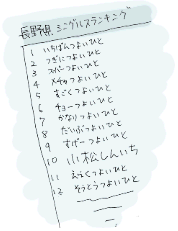 長野県 シングルスランキング
1 いちばんつよいひと
2 つぎにつよいひと
3 スパーつよいひと
4 メチャつよいひと
5 すごくつよいひと
6 チョーつよいひと
7 かなりつよいひと
8 だいぶつよいひと
9 すげーつよいひと
10 小松しんいち
11 ええくつよいひと
12 そうとうつよいひと